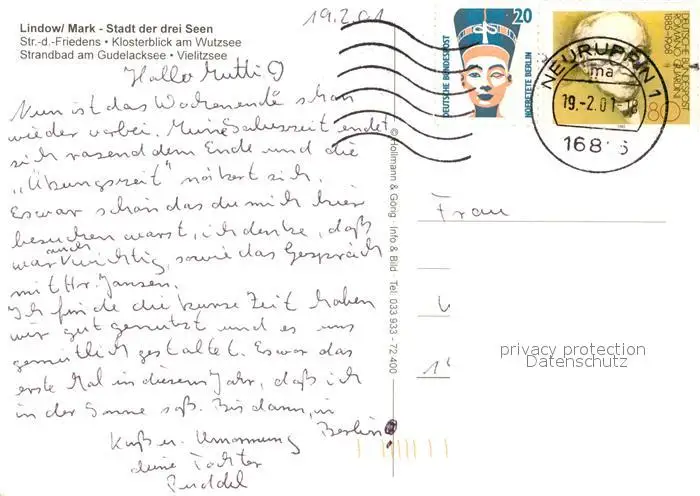 Lindow/ Mark - Stadt der drei Seen
Str.-d.-Friedens • Klosterblick am Wutzsee
Strandbad am Gudelacksee • Vielitzsee
19.2.01
Hallo Mutti
Nun ist das Wochenende schon
wieder vorbei. Meine endet
sich rasend dem Ende und die
„Übungszeit" nähert sich.
Es war schön das du mich hier
besuchen warst, ich denke, daß
war auch wichtig, sowie das Gespräch
mit Hr. Jansen.
Ich finde die kurze Zeit haben
wir gut genutzt und es uns
gemütlich gestaltet. Es war das
erste Mal in diesem Jahr, daß ich
in der Sonne saß. Bis dann, in
Berlin
Kuß u. Umarmung
deine Tochter
Puddel
© Hollmann & Görig · Info & Bild · Tel: 033 933 - 72 400
DEUTSCHE BUNDESPOST
20
NOFRETETE BERLIN
DEUTSCHE BUNDESPOST
ROMANO GUARDINI
1885-1968
80
NEURUPPIN 1
ma
19.-2.01-18
16816
Frau
privacy protection
Datenschutz